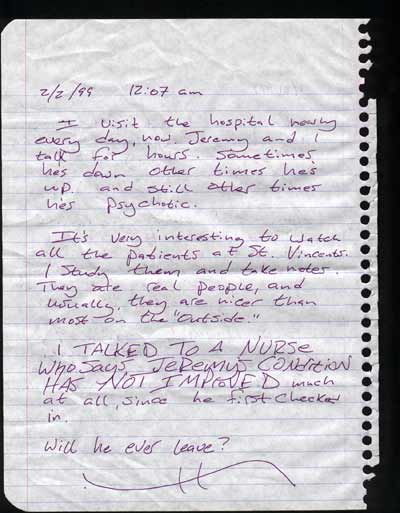 2/2/99 12:07 am
I visit the hospital nearly
every day, now. Jeremy and I
talk for hours. Sometimes
he's down other times he's
up. and still other times
he's psychotic.
It's very interesting to watch
all the patients at St. Vincents.
I study them and take notes.
They are real people, and
usually, they are nicer than
most on the "outside."
I TALKED TO A NURSE
WHO SAYS JEREMY'S CONDITION
HAS NOT IMPROVED much
at all, since he first checked
in.
Will he ever leave?